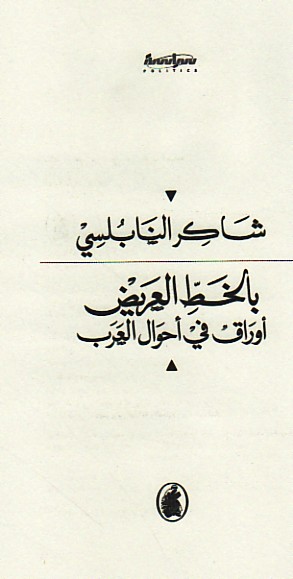 سياسة
POLITICS
شَاكِر النَّابُلسِيْ
بالخَطِّ العَرِيْضْ
أورَاقٌ فيْ أحوَال العَرَب